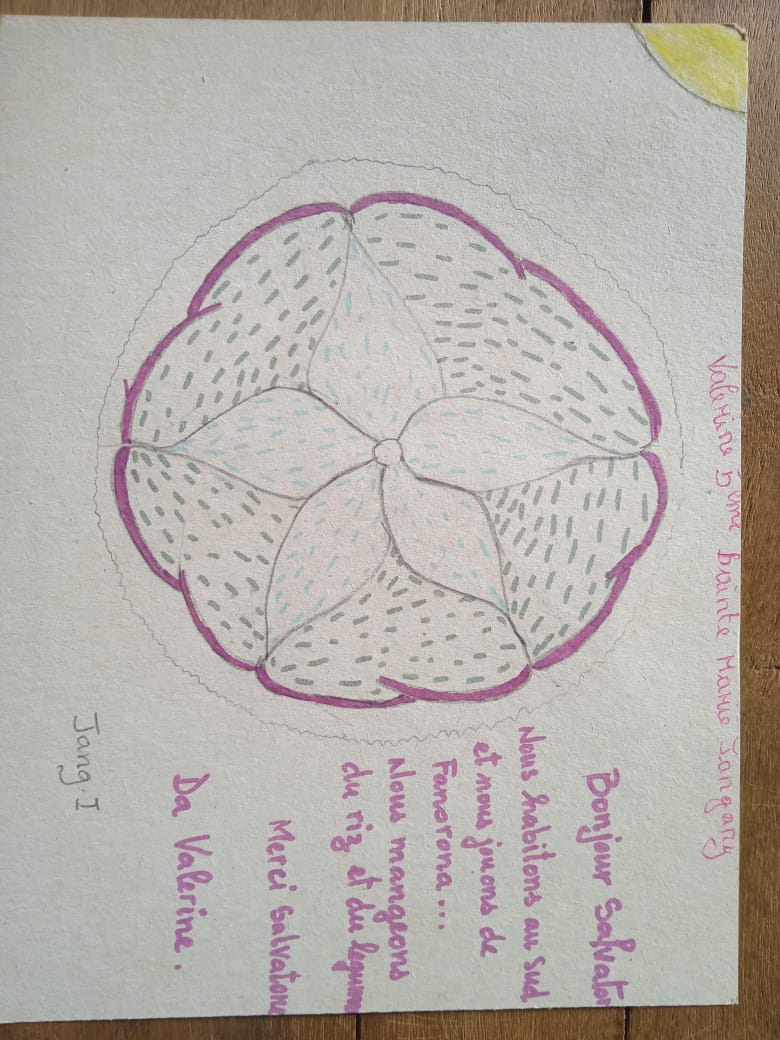 Valerine 5ème Sainte Marie Tangary
Bonjour Salvator
Nous habitons au Sud
et nous jouons de
Fanorona...
Nous mangeons
du riz et du légume
Merci Salvatore
Da Valerine.
Tang.I